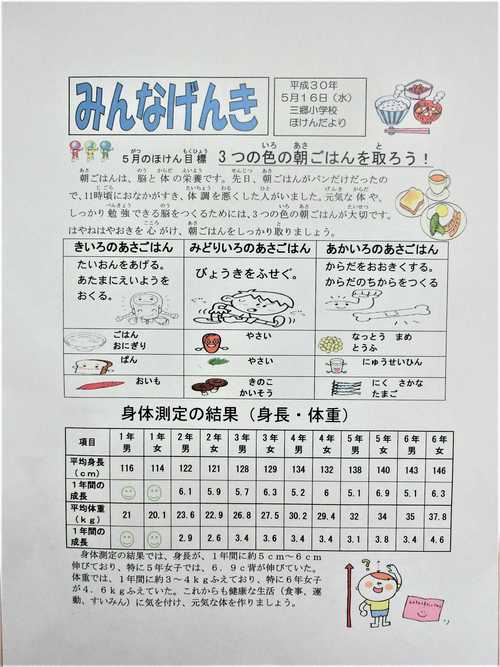 みんなげんき
平成30年
5月16日（水）
三郷小学校
ほけんだより
5月のほけん目標 3つの色の朝ごはんを取ろう！
朝ごはんは、脳と体の栄養です。先日、朝ごはんがパンだけだったの
で、11時頃におなかがすき、体調を悪くした人がいました。元気な体や、
しっかり勉強できる脳をつくるためには、3つの色の朝ごはんが大切です。
はやねはやおきを心がけ、朝ごはんをしっかり取りましょう。
きいろのあさごはん みどりいろのあさごはん あかいろのあさごはん
たいおんをあげる。
あたまにえいようを
おくる。
びょうきをふせぐ。
からだをおおきくする。
からだのちからをつくる
ごはん
おにぎり
やさい
なっとう まめ
とうふ
ぱん
やさい
にゅうせいひん
おいも
きのこ
かいそう
にく さかな
たまご
身体測定の結果（身長・体重）
項目 1年男 1年女 2年男 2年女 3年男 3年女 4年男 4年女 5年男 5年女 6年男 6年女
平均身長（cm） 116 114 122 121 128 129 134 132 138 140 143 146
1年間の成長 6.1 5.9 5.7 6.3 5.2 6 5.1 6.9 5.1 6.3
平均体重（kg） 21 20.1 23.6 22.9 26.8 27.5 30.2 29.4 32 34 35 37.8
1年間の成長 2.9 2.6 3.4 3.6 3.4 3.4 3.1 3.8 3.4 4.6
身体測定の結果では、身長が、1年間に約5cm～6cm
伸びており、特に5年女子では、6．9c背が伸びていた。
体重では、1年間に約3～4kgふえており、特に6年女子
が4．6kgふえていた。これからも健康な生活（食事、運
動、すいみん）に気を付け、元気な体を作りましょう。